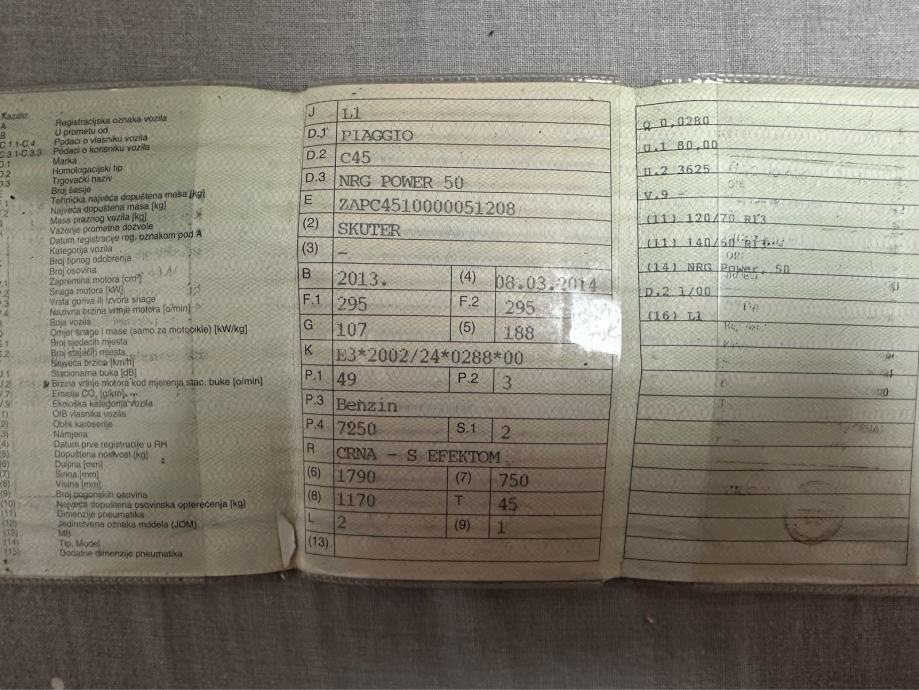 Kazalo:
A Registracijska oznaka vozila
B U prometu od
C.1.1-C.4 Podaci o vlasniku vozila
C.3.1-C.3.3 Podaci o korisniku vozila
D.1 Marka
D.2 Homologacijski tip
D.3 Trgovački naziv
Broj šasije
F.1 Tehnička najveća dopuštena masa [kg]
F.2 Najveća dopuštena masa [kg]
Masa praznog vozila [kg]
Važenje prometne dozvole
Datum registracije reg. oznakom pod A
Kategorija vozila
Broj tipnog odobrenja
Broj osovina
Zapremina motora [cm³]
Snaga motora [kW]
Vrsta goriva ili izvora snage
Nazivna brzina vrtnje motora [o/min]
Boja vozila
Omjer snage i mase (samo za motocikle) [kW/kg]
Broj sjedećih mjesta
Broj stajaćih mjesta
Najveća brzina [km/h]
Stacionarna buka [dB]
Brzina vrtnje motora kod mjerenja stac. buke [o/min]
Emisija CO₂ [g/km]
Ekološka kategorija vozila
(1) OIB vlasnika vozila
(2) Oblik karoserije
(3) Namjena
(4) Datum prve registracije u RH
(5) Dopuštena nosivost [kg]
(6) Duljina [mm]
(7) Širina [mm]
(8) Visina [mm]
(9) Broj pogonskih osovina
(10) Najveća dopuštena osovinska opterećenja [kg]
(11) Dimenzije pneumatika
(12) Jedinstvena oznaka modela (JOM)
(13) MB
(14) Tip, Model
(15) Dodatne dimenzije pneumatika
J L1
D.1 PIAGGIO
D.2 C45
D.3 NRG POWER 50
E ZAPC4510000051208
(2) SKUTER
(3) –
B 2013. (4) 08.03.2014
F.1 295 F.2 295
G 107 (5) 188
K E3*2002/24*0288*00
P.1 49 P.2 3
P.3 Benzin
P.4 7250 S.1 2
R CRNA - S EFEKTOM
(6) 1790 (7) 750
(8) 1170 T 45
L 2 (9) 1
(13)
Q 0,0280
U.1 80,00
U.2 3625
V.9 -
(11) 120/70 R13
(11) 140/60 R13
(14) NRG Power, 50
D.2 1/00
(16) L1